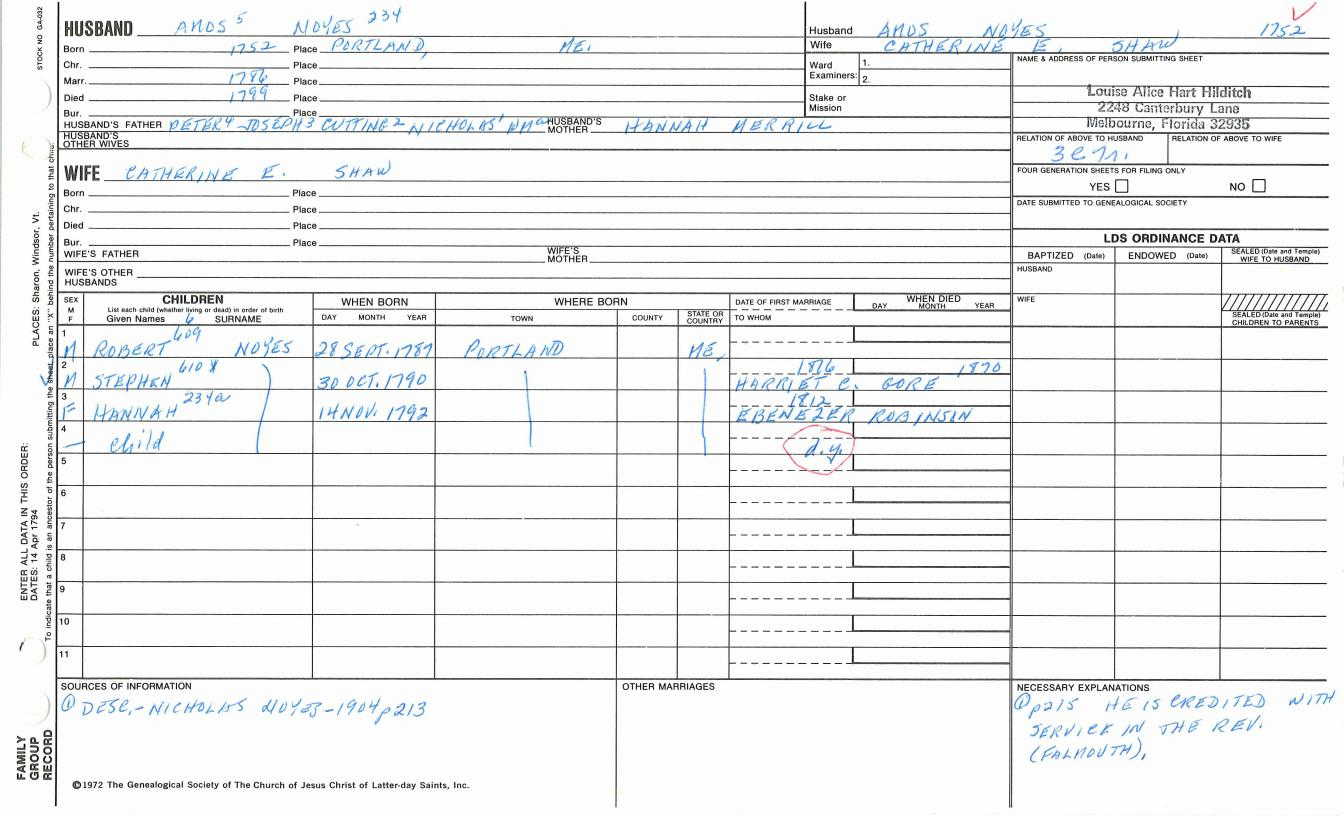 STOCK NO. GA-032
HUSBAND AMOS 5 NOYES 234
Born 1752 Place PORTLAND, ME.
Chr. Place
Marr. 1786 Place
Died 1799 Place
Bur. Place
HUSBAND'S FATHER PETER 4 JOSEPH 3 CUTTING 2 NICHOLAS 1 HUSBAND'S MOTHER HANNAH MERRILL
HUSBAND'S OTHER WIVES
Husband AMOS NOYES 1752
Wife CATHERINE E. SHAW
Ward Examiners: 1.
2.
Stake or Mission
NAME & ADDRESS OF PERSON SUBMITTING SHEET
Louise Alice Hart Hilditch
2248 Canterbury Lane
Melbourne, Florida 32935
RELATION OF ABOVE TO HUSBAND RELATION OF ABOVE TO WIFE
FOUR GENERATION SHEETS FOR FILING ONLY
YES NO
DATE SUBMITTED TO GENEALOGICAL SOCIETY
WIFE CATHERINE E. SHAW
Born Place
Chr. Place
Died Place
Bur. Place
WIFE'S FATHER WIFE'S MOTHER
WIFE'S OTHER HUSBANDS
LDS ORDINANCE DATA
BAPTIZED (Date) ENDOWED (Date) SEALED (Date and Temple) WIFE TO HUSBAND
HUSBAND
WIFE
SEALED (Date and Temple) CHILDREN TO PARENTS
SEX M F
CHILDREN
List each child (whether living or dead) in order of birth
Given Names 6 SURNAME
WHEN BORN
DAY MONTH YEAR
WHERE BORN
TOWN COUNTY STATE OR COUNTRY
DATE OF FIRST MARRIAGE
TO WHOM
WHEN DIED
DAY MONTH YEAR
1 M ROBERT 609 NOYES 28 SEPT. 1787 PORTLAND ME.
2 M STEPHEN 610 X 30 OCT. 1790 1816 HARRIET C. GORE 1870
3 F HANNAH 234a 14 NOV. 1792 1812 EBENEZER ROBINSON
4 — child d.y.
5
6
7
8
9
10
11
SOURCES OF INFORMATION
① DESC. - NICHOLAS NOYES - 1904 p 213
OTHER MARRIAGES
NECESSARY EXPLANATIONS
① p 215 HE IS CREDITED WITH
SERVICE IN THE REV.
(FALMOUTH),
©1972 The Genealogical Society of The Church of Jesus Christ of Latter-day Saints, Inc.
FAMILY GROUP RECORD
ENTER ALL DATA IN THIS ORDER:
DATES: 14 Apr 1794
PLACES: Sharon, Windsor, Vt.
To indicate that a child is an ancestor of the person submitting the sheet, place an "X" behind the number pertaining to that child.